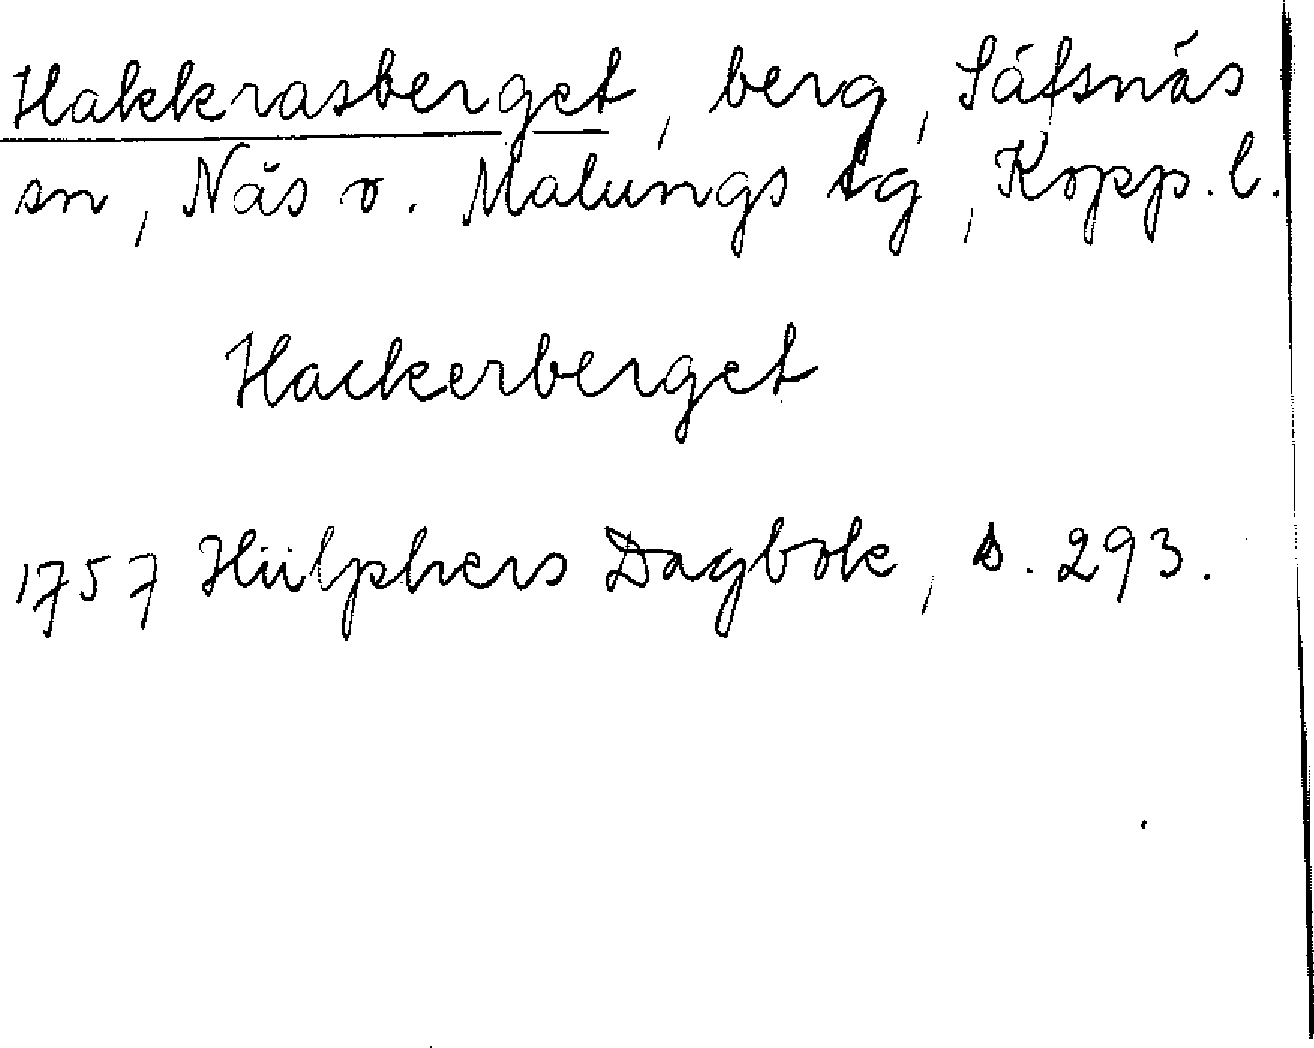 Hakkrasberget, berg, Säfsnäs
sn, Näs o. Malungs tg, Kopp. l.
Hackerberget
1757 Hülphers Dagbok, s. 293.